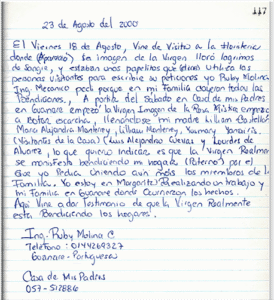 117
23 de Agosto del 2000
El Viernes 18 de Agosto, Vine de Visita a la
donde (Aparecio) La imagen de la Virgen lloró lagrimas
de sangre, y estaban unos papelitos que utiliza los
personas visitantes para escribir su peticiones yo Ruby Molina
Ing. Mecanico pedi porque en mi Familia cayeran todas las
Bendiciones, A partir del Sabado en Casa de mis Padres
en Guanare empezo la Virgen Imagen de la Rosa Mistica empezo
a Botar escarcha, llenandose mi madre Lilliam
Maria Alejandra Monterey, Lilliam Monterey,
(Visitantes de la Casa) Luis Alejandro Cuevas y Lourdes de
Alvarez, lo que quiero indicar es que la Virgen Realmente
se manifesto bendiciendo mi hogar (Paterno) por el
que yo Pedia Uniendo aun más los miembros de la
Familia. Yo estoy en Margarita Realizando un trabajo y
mi Familia en Guanare donde Ocurrieron los hechos.
Aqui Vine a dar Testimonio de que la Virgen Realmente
esta Bendiciendo los hogares.
Ing. Ruby Molina C.
Telefono:
Guanare - Portuguesa
Casa de Mis Padres
057-